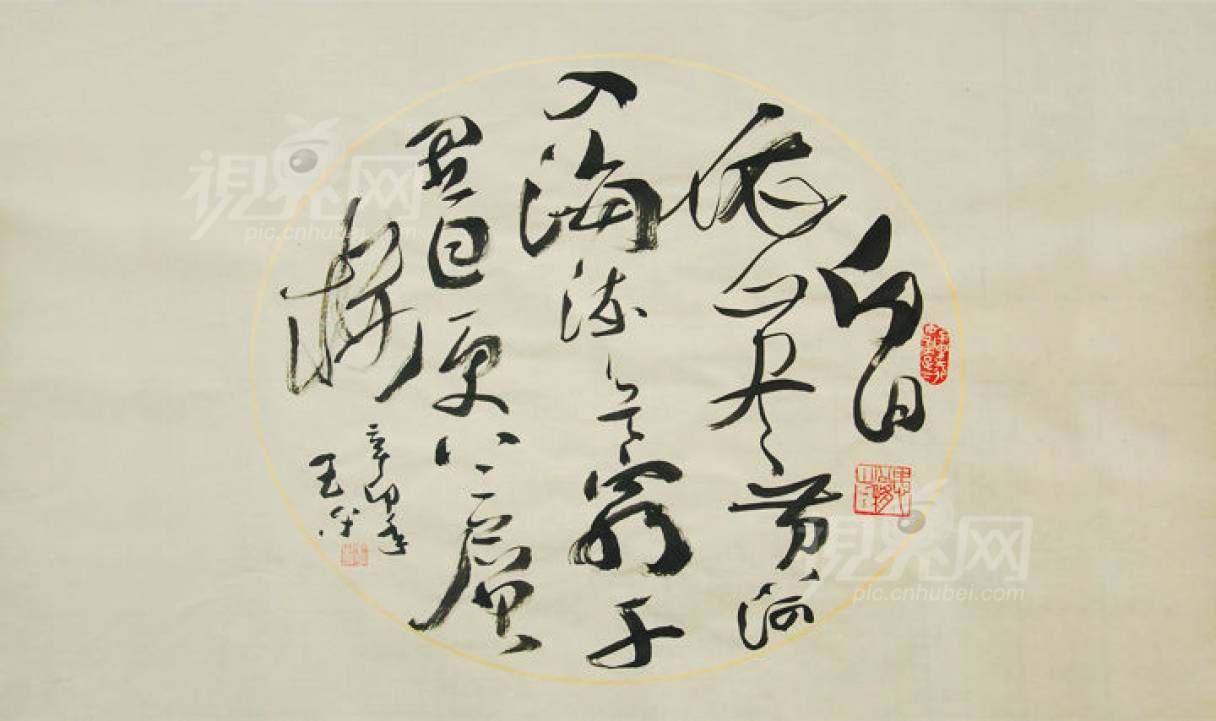 白日
依山尽黄河
入海流欲窮千
里目更上一層
楼
辛卯年
王平
視界网
pic.cnhubei.com
視界网
pic.cnhubei.com